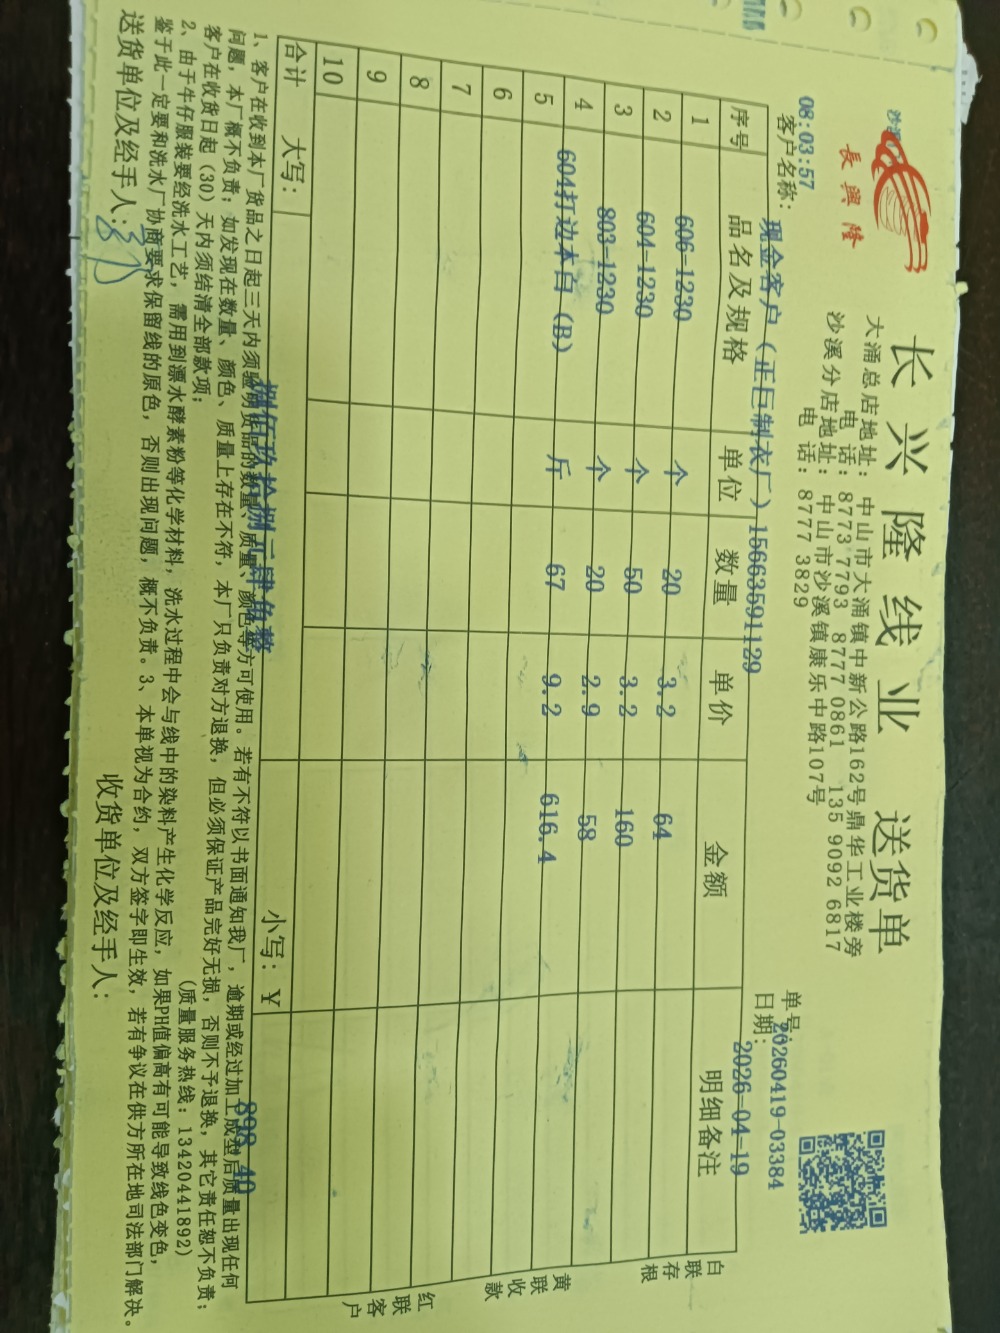 長興隆
长兴隆线业 送货单
大涌总店地址：中山市大涌镇中新公路162号鼎华工业楼旁
电 话：8773 7793 8777 0861 135 9092 6817
沙溪分店地址：中山市沙溪镇康乐中路107号
电 话：8777 3829
08:03:57
单号：20260419-03384
客户名称：现金客户（正巨制衣厂）15663591129
日期：2026-04-19
序号 品名及规格 单位 数量 单价 金额 明细备注
1 606-1230 个 20 3.2 64
2 604-1230 个 50 3.2 160
3 803-1230 个 20 2.9 58
4 604打边本白（B） 斤 67 9.2 616.4
5
6
7
8
9
10
合计 大写：捌佰玖拾捌元肆角整 小写：¥ 898.40
白联存根
黄联收款
红联客户
1、客户在收到本厂货品之日起三天内须验明货品的数量、质量、颜色等方可使用。若有不符以书面通知我厂，逾期或经过加工成型后质量出现任何
问题，本厂概不负责；如发现在数量、颜色、质量上存在不符，本厂只负责对方退换，但必须保证产品完好无损，否则不予退换，其它责任恕不负责；
客户在收货日起（30）天内须结清全部款项；
(质量服务热线：13420441892)
2、由于牛仔服装要经洗水工艺，需用到漂水酵素粉等化学材料，洗水过程中会与线中的染料产生化学反应，如果PH值偏高有可能导致线色变色，
鉴于此一定要和洗水厂协商要求保留线的原色，否则出现问题，概不负责。3、本单视为合约，双方签字即生效，若有争议在供方所在地司法部门解决。
送货单位及经手人：
收货单位及经手人：